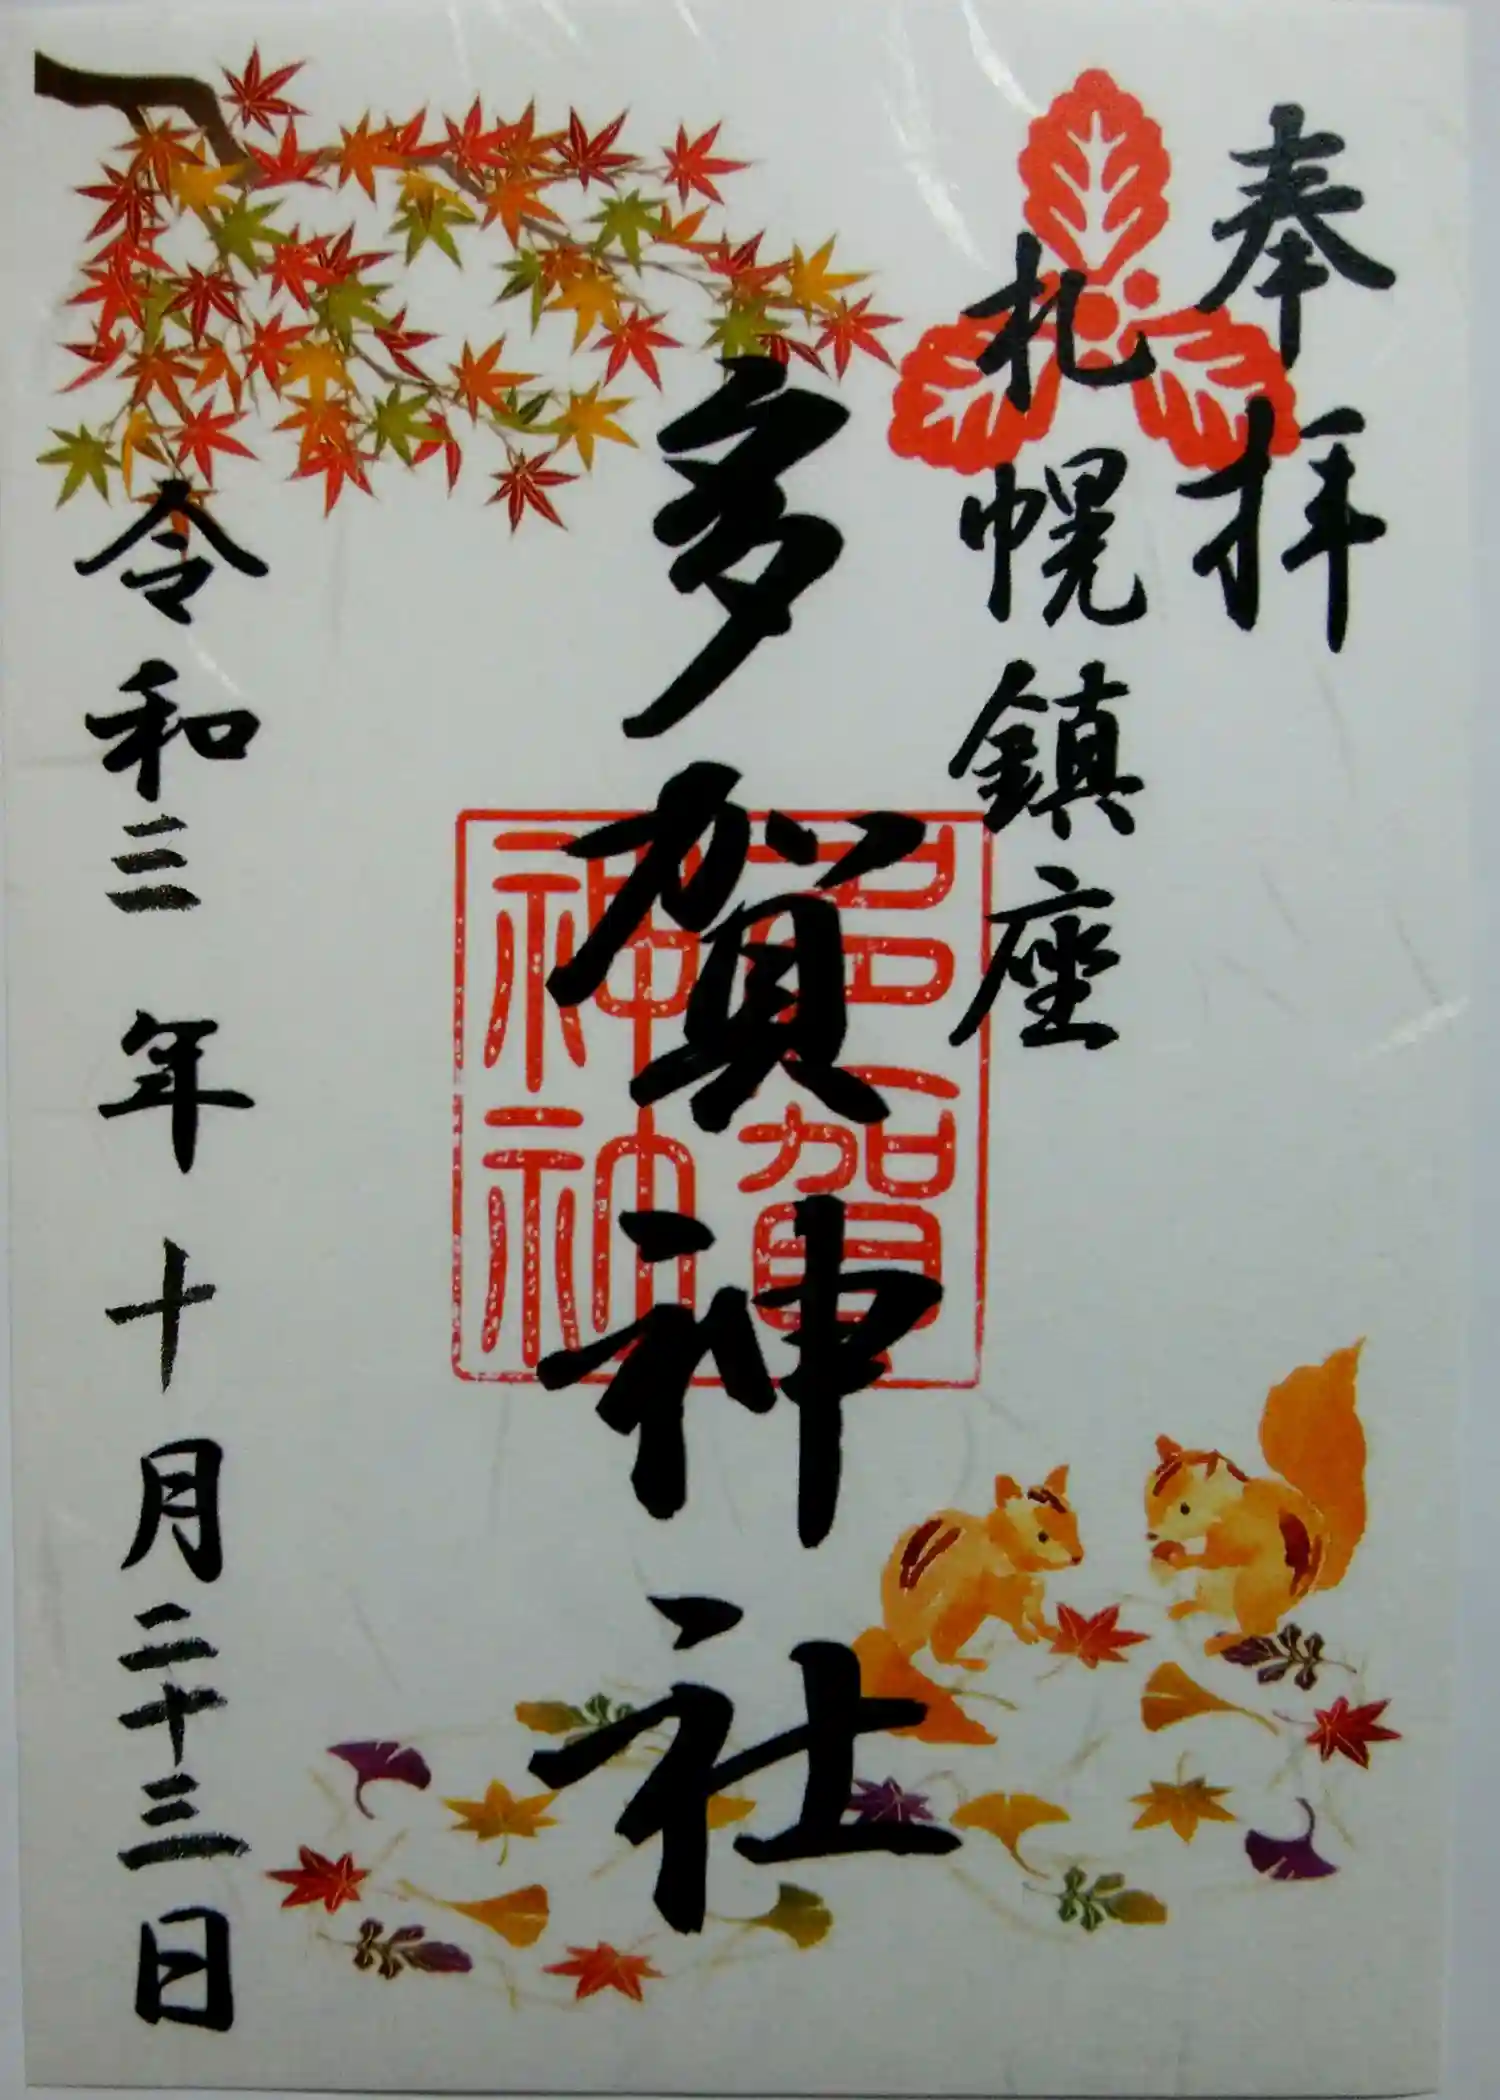 奉拝
札幌鎮座
多賀神社
多賀
神社
令和三年十月二十三日